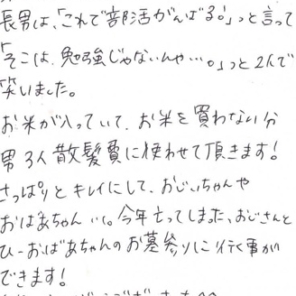 長男は、「これで部活がんばる!」っと言って
「そこは、勉強じゃないんや…。」っと2人で
笑いました。
お米が入っていて、お米を買わない分
男3人散髪費に使わせて頂きます!
さっぱりとキレイにして、おじいちゃんや
おばあちゃん…。今年亡ってしまった、おじさんと
ひーおばあちゃんのお墓参りに行く事が
できます!